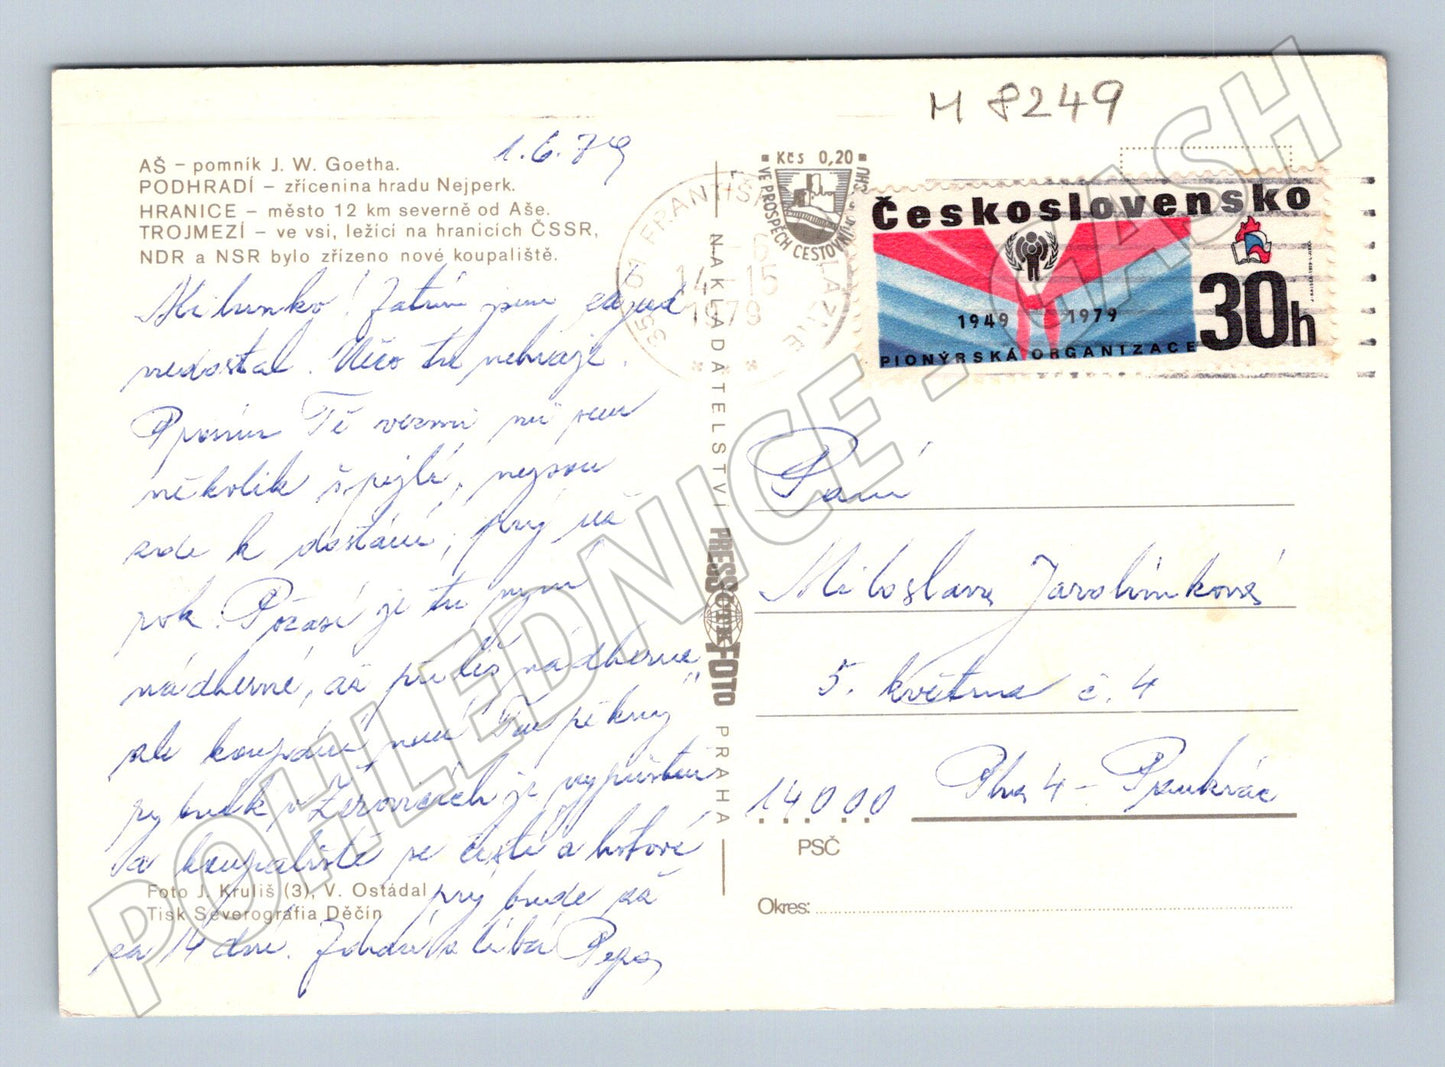 M 8249
1.6.79
AŠ – pomník J. W. Goetha.
PODHRADÍ – zřícenina hradu Nejperk.
HRANICE – město 12 km severně od Aše.
TROJMEZÍ – ve vsi, ležící na hranicích ČSSR,
NDR a NSR bylo zřízeno nové koupaliště.
Milunko! Zatím jsem
nedostal. Něco tu nehraje.
Prosím Tě vezmi mi sem
několik špejlí, nejsou
zde k dostání, prý až
rok. Počasí je tu nyní
nádherné, až přijdeš "nádherné"
ale koupání není. Ten pěkný
rybník v Žírovicích je vypuštěn
a koupaliště se čistí a hotové
prý bude až
za 14 dní. Zdraví a líbá Pepa
Foto J. Kruliš (3), V. Ostádal
Tisk Severografia Děčín
NAKLADATELSTVÍ
PRESSFOTO
ČTK
PRAHA
351 01 FRANTIŠ LÁZNĚ
6
14-15
1979
Kčs 0,20
VE PROSPĚCH CESTOVNÍHO
Československo
1949 1979
30h
PIONÝRSKÁ ORGANIZACE
Paní
Miloslava Jarolímková
5. května č. 4
14000 Pha 4 – Pankrác
PSČ
Okres:
POHLEDNICE - GASH